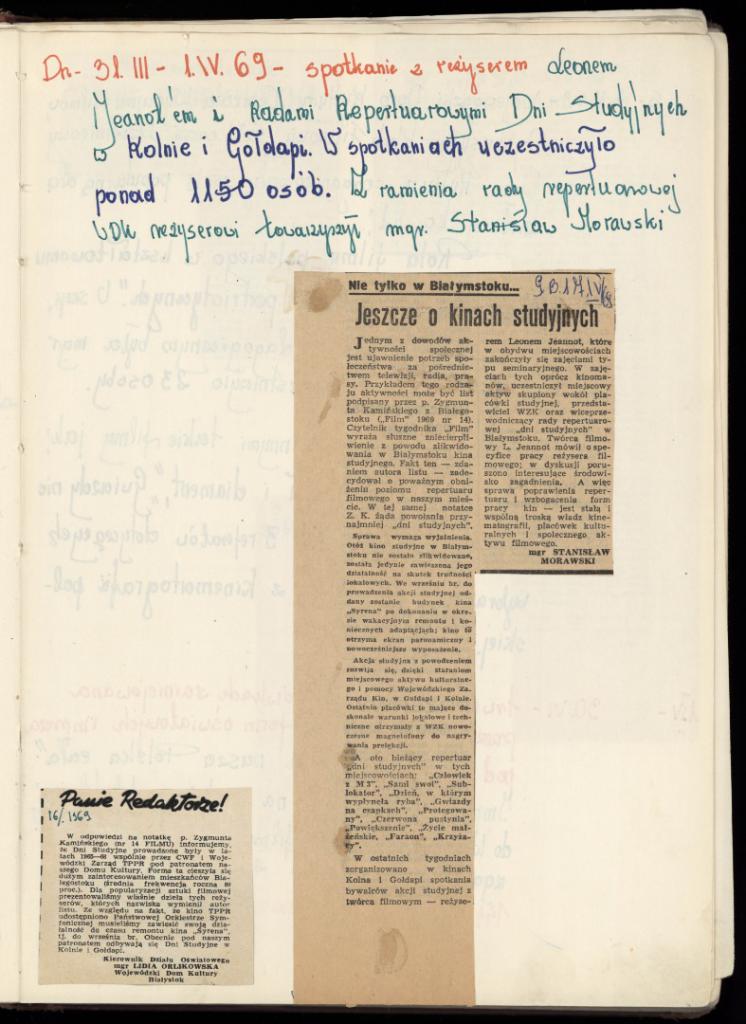 Dn- 31.III - 1.IV. 69 - spotkanie z reżyserem Leonem
Jeanot'em z Radami Repertuarowymi Dni Studyjnych
w Kolnie i Gołdapi. W spotkaniach uczestniczyło
ponad 1150 osób. Z ramienia rady repertuarowej
WDK reżyserowi towarzyszył mgr. Stanisław Morawski
Nie tylko w Białymstoku...
G.B. 17.IV/69
Jeszcze o kinach studyjnych
Jednym z dowodów ak-
tywności społecznej
jest ujawnienie potrzeb spo-
łeczeństwa za pośrednic-
twem telewizji, radia, pra-
sy. Przykładem tego rodza-
ju aktywności może być list
podpisany przez p. Zygmun-
ta Kamińskiego z Białego-
stoku („Film" 1969 nr 14).
Czytelnik tygodnika „Film"
wyraża słuszne zniecierpli-
wienie z powodu zlikwido-
wania w Białymstoku kina
studyjnego. Fakt ten — zda-
niem autora listu — zade-
cydował o poważnym obni-
żeniu poziomu repertuaru
filmowego w naszym mieś-
cie. W tej samej notatce
Z. K. żąda powołania przy-
najmniej „dni studyjnych".
Sprawa wymaga wyjaśnienia.
Otóż kino studyjne w Białym-
stoku nie zostało zlikwidowane,
została jedynie zawieszona jego
działalność na skutek trudności
lokalowych. We wrześniu br. do
prowadzenia akcji studyjnej od-
dany zostanie budynek kina
„Syrena" po dokonaniu w okre-
sie wakacyjnym remontu i ko-
niecznych adaptacjach; kino to
otrzyma ekran panoramiczny i
nowocześniejsze wyposażenie.
Akcja studyjna z powodzeniem
rozwija się, dzięki staraniom
miejscowego aktywu kulturalne-
go i pomocy Wojewódzkiego Za-
rządu Kin, w Gołdapi i Kolnie.
Ostatnio placówki te mające do-
skonałe warunki lokalowe i tech-
niczne otrzymały z WZK nowo-
czesne magnetofony do nagry-
wania prelekcji.
A oto bieżący repertuar
„dni studyjnych" w tych
miejscowościach: „Człowiek
z M 3", „Sami swoi", „Sub-
lokator", „Dzień, w którym
wypłynęła ryba", „Gwiazdy
na czapkach", „Protegowa-
ny", „Czerwona pustynia",
„Powiększenie", „Życie mał-
żeńskie, „Faraon", „Krzyża-
cy".
W ostatnich tygodniach
zorganizowano w kinach
Kolna i Gołdapi spotkania
bywalców akcji studyjnej z
twórcą filmowym — reżyse-
rem Leonem Jeannot, które
w obydwu miejscowościach
zakończyły się zajęciami typu
seminaryjnego. W zaję-
ciach tych oprócz kinoma-
nów, uczestniczył miejscowy
aktyw skupiony wokół pla-
cówki studyjnej, przedsta-
wiciel WZK oraz wiceprze-
wodniczący rady repertuaro-
wej „dni studyjnych" w
Białymstoku. Twórca filmo-
wy L. Jeannot mówił o spe-
cyfice pracy reżysera fil-
mowego; w dyskusji poru-
szono interesujące środowi-
sko zagadnienia. A więc
sprawa poprawienia reper-
tuaru i wzbogacenia form
pracy kin — jest stałą i
wspólną troską władz kine-
matografii, placówek kultu-
ralnych i społecznego ak-
tywu filmowego.
mgr STANISŁAW
MORAWSKI
Panie Redaktorze!
16/. 1969
W odpowiedzi na notatkę p. Zygmunta
Kamińskiego (nr 14 FILMU) informujemy,
że Dni Studyjne prowadzone były w la-
tach 1965—68 wspólnie przez CWF i Woje-
wódzki Zarząd TPPR pod patronatem na-
szego Domu Kultury. Forma ta cieszyła się
dużym zainteresowaniem mieszkańców Bia-
łegostoku (średnia frekwencja roczna 80
proc.). Dla popularyzacji sztuki filmowej
prezentowaliśmy właśnie dzieła tych reży-
serów, których nazwiska wymienił autor
listu. Ze względu na fakt, że kino TPPR
udostępniono Państwowej Orkiestrze Sym-
fonicznej musieliśmy zawiesić swoją dzia-
łalność do czasu remontu kina „Syrena",
tj. do września br. Obecnie pod naszym
patronatem odbywają się Dni Studyjne w
Kolnie i Gołdapi.
Kierownik Działu Oświatowego
mgr LIDIA ORLIKOWSKA
Wojewódzki Dom Kultury
Białystok